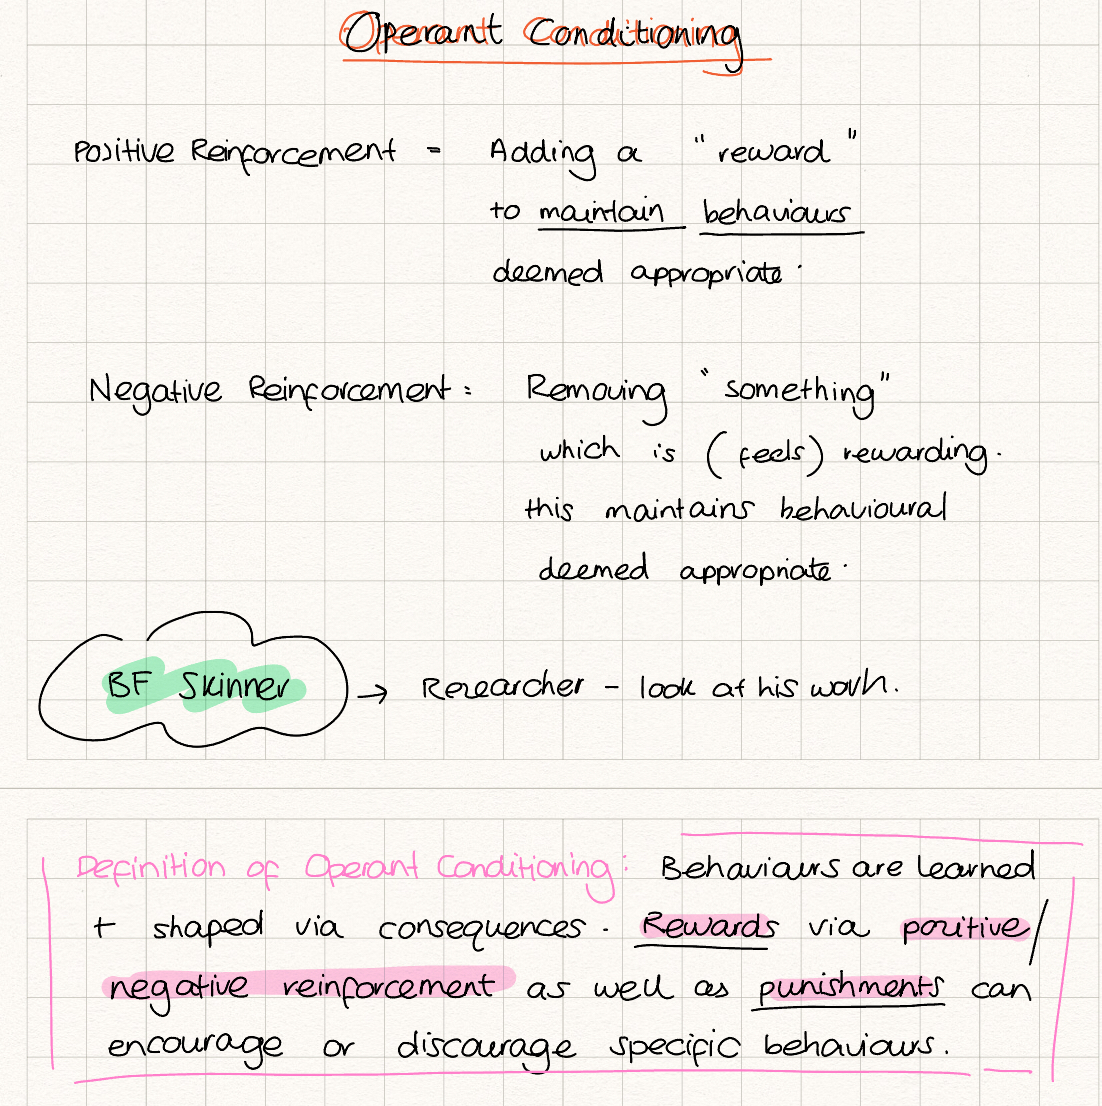 Operant Conditioning
Positive Reinforcement - Adding a "reward"
to maintain behaviours
deemed appropriate.
Negative Reinforcement: Removing "something"
which is (feels) rewarding.
this maintains behavioural
deemed appropriate.
BF Skinner → Researcher - look at his work.
Definition of Operant Conditioning: Behaviours are learned
+ shaped via consequences. Rewards via positive/
negative reinforcement as well as punishments can
encourage or discourage specific behaviours.